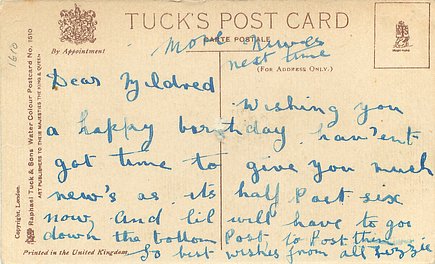 TUCK'S POST CARD
CARTE POSTALE
By Appointment
(FOR ADDRESS ONLY.)
1610
Raphael Tuck & Sons Water Colour Postcard No. 1510
ART PUBLISHERS TO THEIR MAJESTIES THE KING & QUEEN
Copyright, London.
More news
next time
Dear Mildred
Wishing you
a happy birthday haven'ent
got time to give you much
new's as its half Past six
now and lil will have to go
down the bottom Post to Post them
So best wishes from all Lizzie
Printed in the United Kingdom.